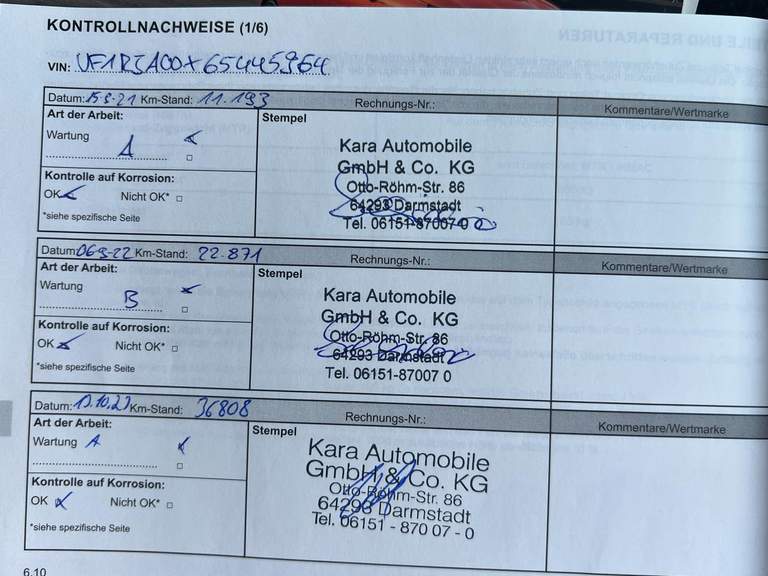 KONTROLLNACHWEISE (1/6)
VIN: VF1RJA00X65445964
Datum: 15.9.21 Km-Stand: 11.193 Rechnungs-Nr.: Kommentare/Wertmarke
Art der Arbeit: Stempel
Wartung A
Kara Automobile
GmbH & Co. KG
Kontrolle auf Korrosion: Otto-Röhm-Str. 86
OK Nicht OK* 64293 Darmstadt
*siehe spezifische Seite Tel. 06151-87007-0
Datum: 06.9-22 Km-Stand: 22.871 Rechnungs-Nr.: Kommentare/Wertmarke
Art der Arbeit: Stempel
Wartung B
Kara Automobile
GmbH & Co. KG
Kontrolle auf Korrosion: Otto-Röhm-Str. 86
OK Nicht OK* 64293 Darmstadt
*siehe spezifische Seite Tel. 06151-87007 0
Datum: 13.10.23 Km-Stand: 36808 Rechnungs-Nr.: Kommentare/Wertmarke
Art der Arbeit: Stempel
Wartung A
Kara Automobile
GmbH & Co. KG
Kontrolle auf Korrosion: Otto-Röhm-Str. 86
OK Nicht OK* 64293 Darmstadt
*siehe spezifische Seite Tel. 06151 - 870 07 - 0
6.10